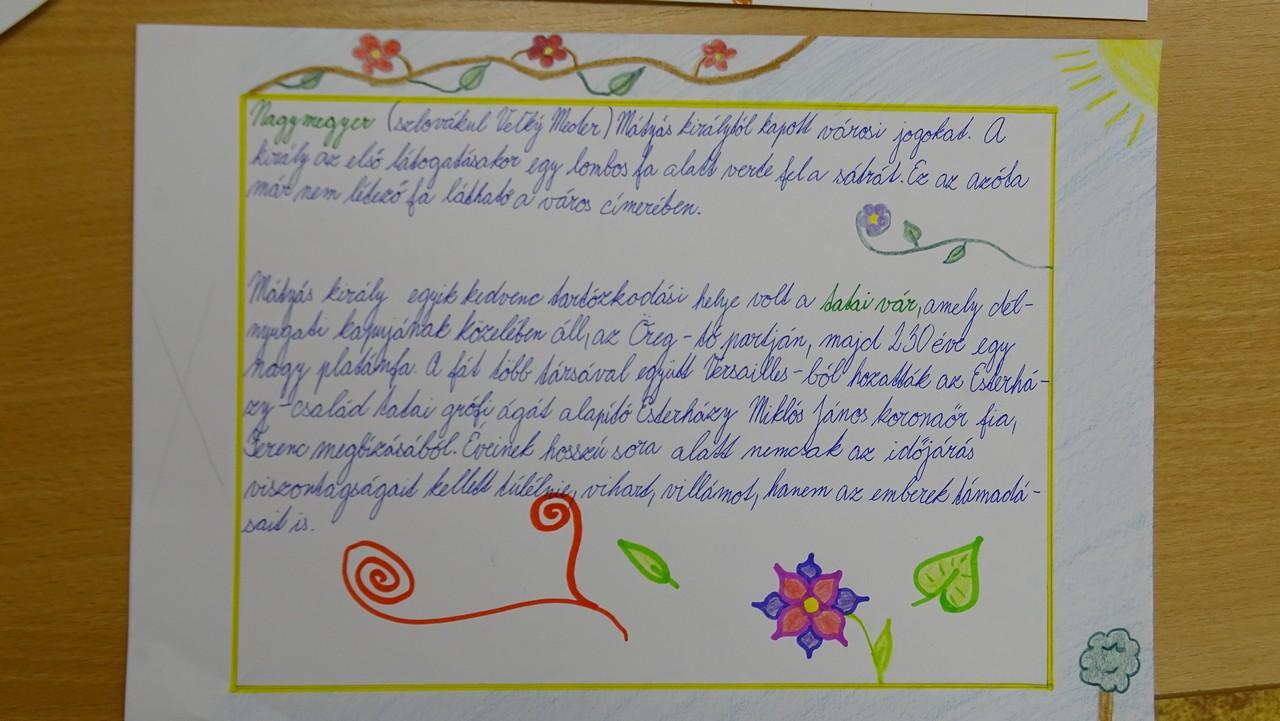 Nagymegyer (szlovákul Veľký Meder) Mátyás királytól kapott városi jogokat. A
király az első látogatásakor egy lombos fa alatt verte fel a sátrát. Ez az azóta
már nem létező fa látható a város címerében.
Mátyás király egyik kedvenc tartózkodási helye volt a tatai vár, amely dél-
nyugati kapujának közelében áll, az Öreg-tó partján, majd 230 éve egy
nagy platánfa. A fát több társával együtt Versailles-ból hozatták az Esterhá-
zy-család tatai grófi ágát alapító Esterházy Miklós János koronaőr fia,
Ferenc megbízásából. Éveinek hosszú sora alatt nemcsak az időjárás
viszontagságait kellett túlélnie, vihart, villámot, hanem az emberek támadá-
sait is.